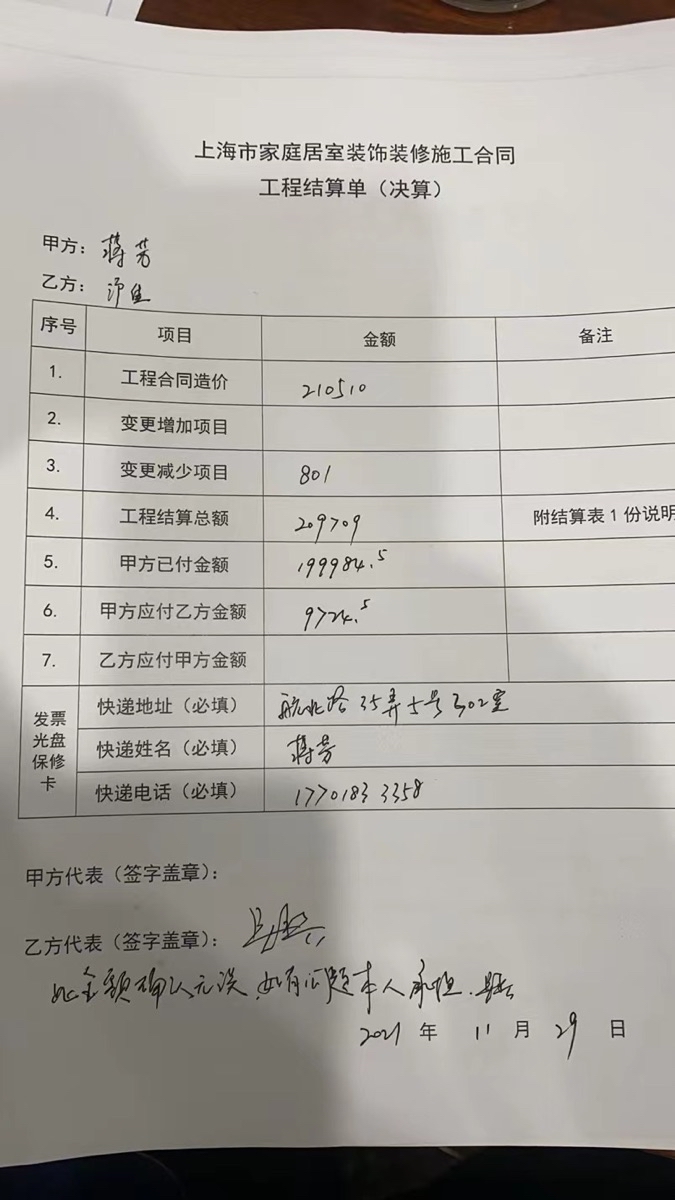 上海市家庭居室装饰装修施工合同
工程结算单（决算）
甲方：蒋芳
乙方：
序号 项目 金额 备注
1. 工程合同造价 210510
2. 变更增加项目
3. 变更减少项目 801
4. 工程结算总额 209709 附结算表1份说明
5. 甲方已付金额 199984.5
6. 甲方应付乙方金额 9724.5
7. 乙方应付甲方金额
发票光盘保修卡
快递地址（必填） 航北路35弄5号302室
快递姓名（必填） 蒋芳
快递电话（必填） 17701833358
甲方代表（签字盖章）：
乙方代表（签字盖章）：
此金额确认无误，如有问题本人承担.
2021 年 11 月 29 日